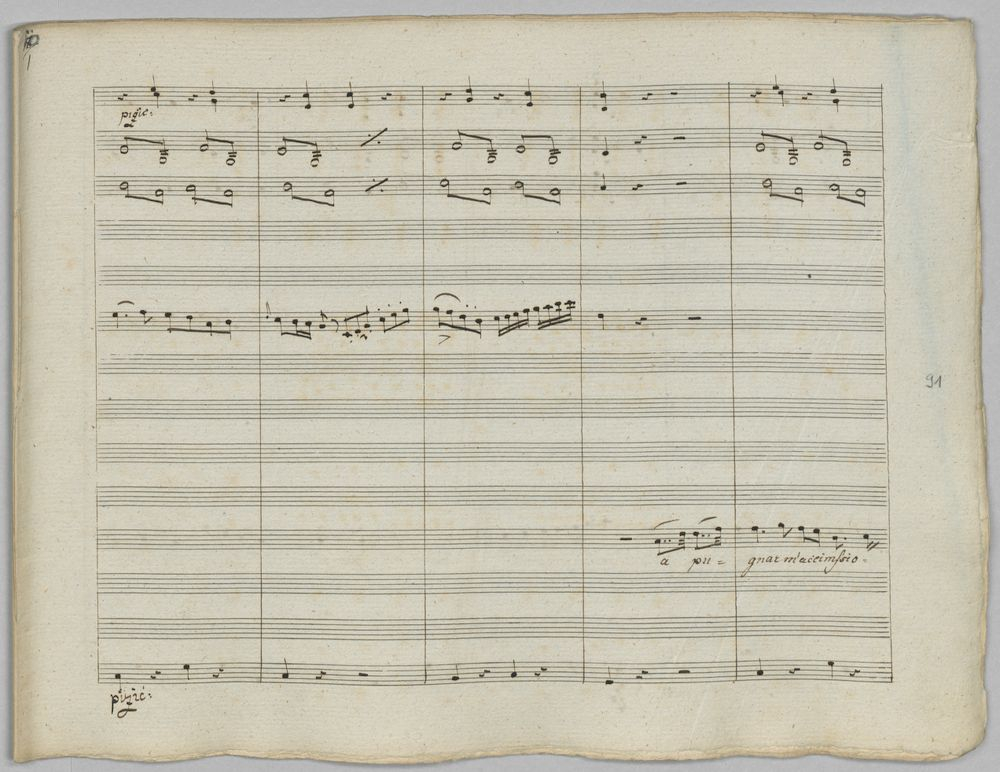 1
pizic:
91
a pu = gnar m'accinsi io =
pizic: